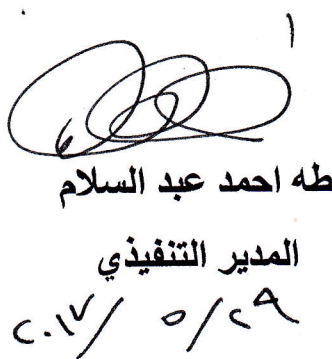 طه احمد عبد السلام
المدير التنفيذي
٢٠١٧/ ٥/٢٩